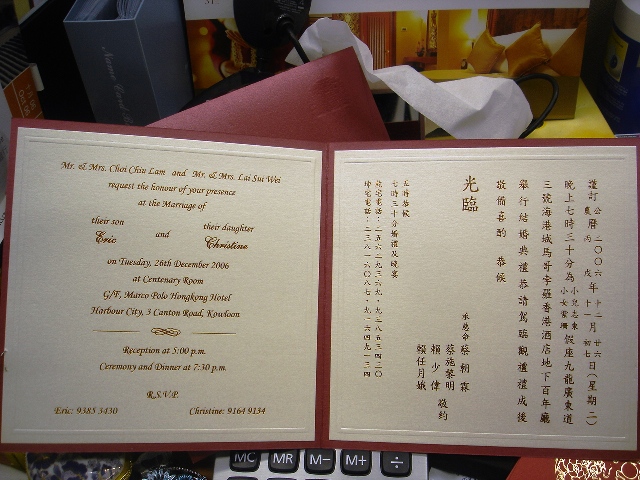 Mr. & Mrs. Choi Chiu Lam and Mr. & Mrs. Lai Sui Wei
request the honour of your presence
at the Marriage of
their son their daughter
Eric and Christine
on Tuesday, 26th December 2006
at Centenary Room
G/F, Marco Polo Hongkong Hotel
Harbour City, 3 Canton Road, Kowloon
Reception at 5:00 p.m.
Ceremony and Dinner at 7:30 p.m.
R.S.V.P.
Eric: 9385 3430 Christine: 9164 9134
謹訂公曆二〇〇六年十二月廿六日(星期二)
農 丙戌 十一月初七
晚上七時三十分為小兒志東
小女 假座九龍廣東道
三號海港城馬哥孛羅香港酒店地下百年廳
舉行結婚典禮恭請駕臨觀禮禮成後
敬備喜酌 恭候
光臨
承慈命蔡朝霖
蔡施黎明
賴少偉 敬約
賴任月娥
五時恭候
七時三十分婚禮及晚宴
MC MR M- M+ ÷